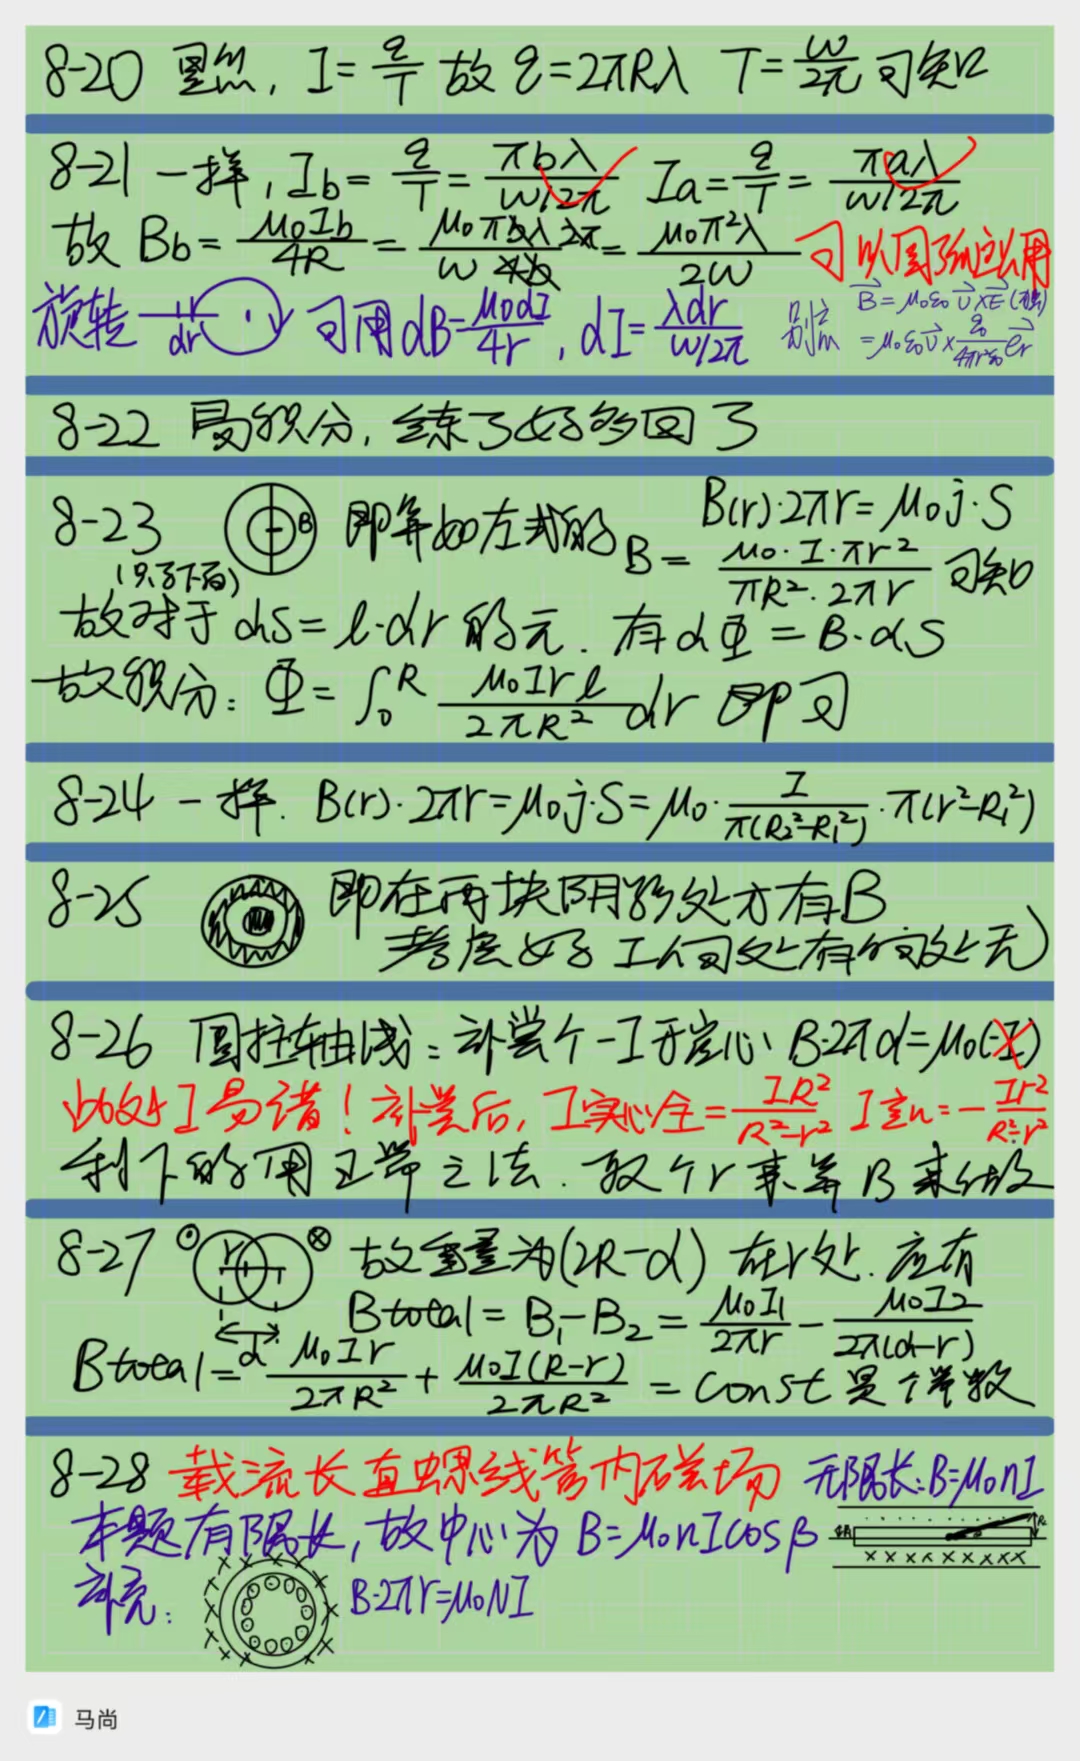 8-20 显然, I=q/T 故 q=2πRλ T=ω/2π 可知
8-21 一样, Ib=q/T=πbλ/(ω/2π) Ia=q/T=πaλ/(ω/2π)
故 Bb=μ0Ib/4R=μ0πbλ2π/ω4b=μ0π²λ/2ω 可以圆弧这么用
旋转 dr 可用 dB=μ0dI/4r, dI=λdr/(ω/2π) 别忘 B=μ0ε0v×E
=μ0ε0v×q0/4πr²ε0 er
8-22 易积分, 练了好多回了
8-23 B 即算如左式的 B(r)·2πr=μ0j·S
B=μ0·I·πr²/πR²·2πr 可知
(只了下面)
故对于 dS=l·dr 的元. 有 dΦ=B·dS
故积分: Φ=∫0^R μ0Irl/2πR² dr 即可
8-24 一样. B(r)·2πr=μ0j·S=μ0·I/π(R2²-R1²)·π(r²-R1²)
8-25 即在两块阴影处才有B
考虑好 I何处有何处无
8-26 圆柱轴线: 补偿个-I于空心 B·2πd=μ0(-I)
此处I易错! 补偿后, I实心全=IR²/R²-r² I空心=-Ir²/R²-r²
剩下的用正常之法. 取个r来算B来做
8-27 r d 故重叠为(2R-d) 在r处. 应有
Btotal=B1-B2=μ0I1/2πr-μ0I2/2π(d-r)
Btotal=μ0Ir/2πR²+μ0I(R-r)/2πR²=const 是个常数
8-28 载流长直螺线管内磁场 无限长:B=μ0nI
本题有限长, 故中心为 B=μ0nIcosβ
补充: B·2πr=μ0NI
马尚